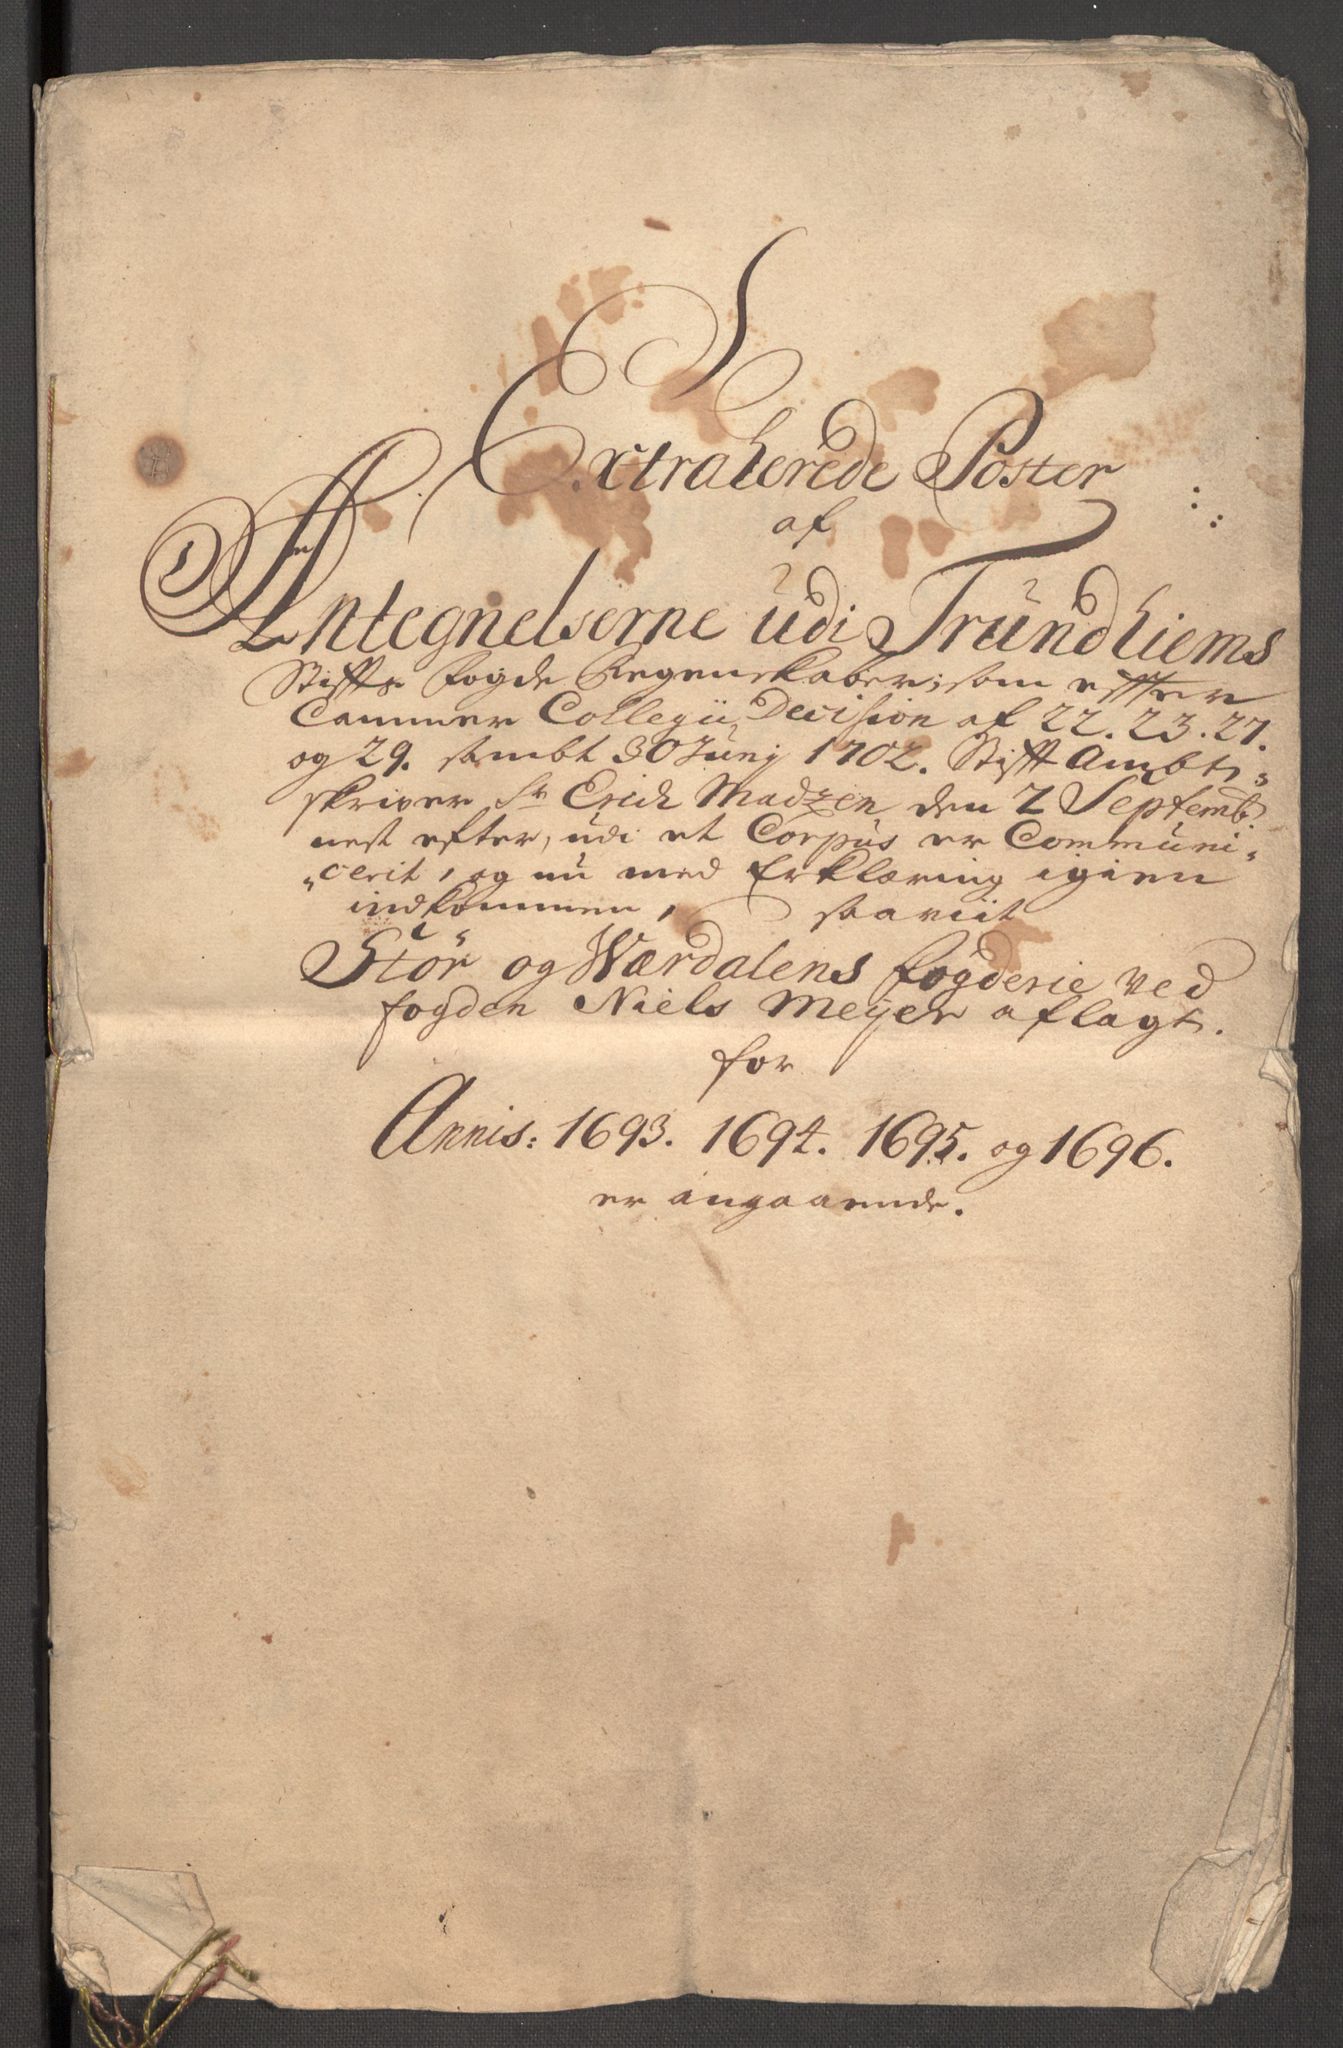 Extraherede Poster
af
Antegnelserne udi Trundhiems
Stiffts fogde Regenskaber, som effter
Cammer Collegii Decision af 22. 23. 27.
og 29. sambt 30 Junj 1702. Stifft Ambt,,
skriver Sr Erich Madzen den 2 Septemb:
nest efter, udi et Corpus er Communi,,
,,cerit, og nu med Erklæring igien
indkommen, saa viit
Stör og Wærdalens fogderie ved
fogden Niels Meÿer aflagt.
for
Annis: 1693. 1694. 1695. og 1696.
er angaaende.